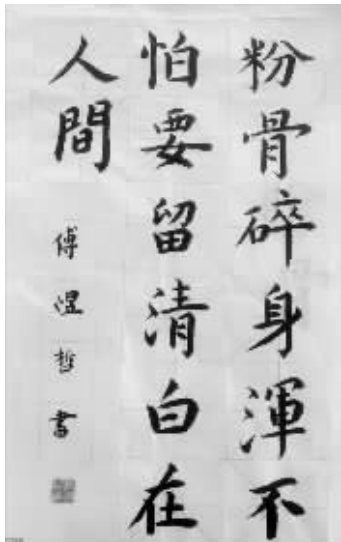 粉骨碎身渾不
怕要留清白在
人間
傅湦哲書